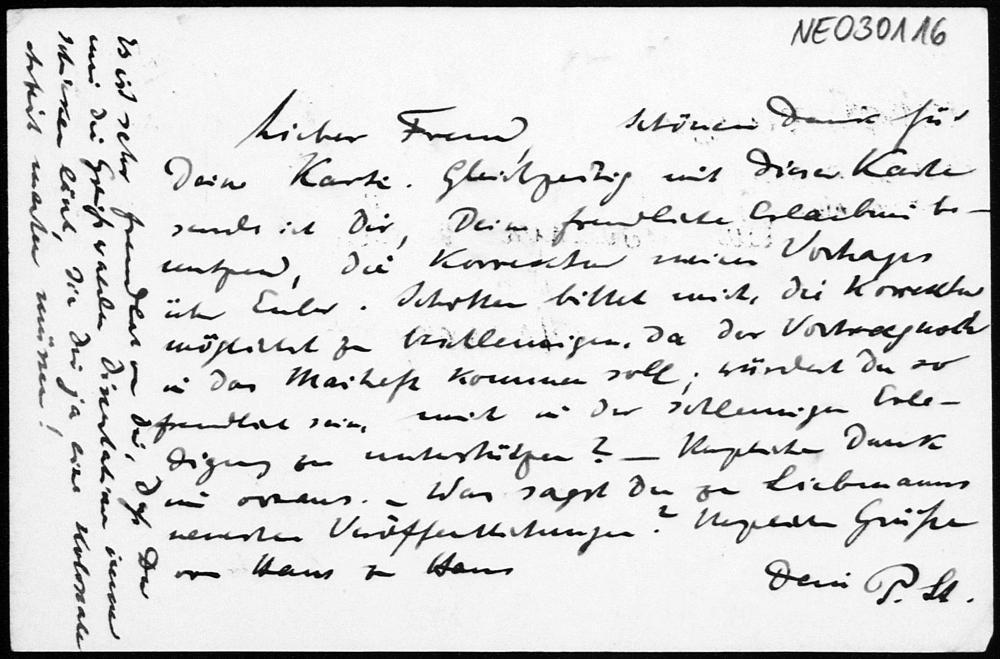 NEO30116
Lieber Freund, schönen Dank für
Deine Karte. Gleichzeitig mit dieser Karte
sende ich Dir, Deine freundliche Erlaubnis be-
nutzend, die Korrektur meines Vortrages
über Euler. Schotten bittet mich, die Korrektur
möglichst zu beschleunigen, da der Vortrag noch
in das Maiheft kommen soll; würdest Du so
freundlich sein, mich in der schleunigen Erle-
digung zu unterstützen? — Herzlichen Dank
im voraus. – Was sagst Du zu Liebmanns
neuesten Veröffentlichungen? Herzliche Grüße
von Haus zu Haus
Dein P. St.
Es ist sehr freundlich von Dir, daß Du
mir die Greifswalder Dissertationen immer
schicken läßt, die Dir ja eine kolossale
Arbeit machen müssen!